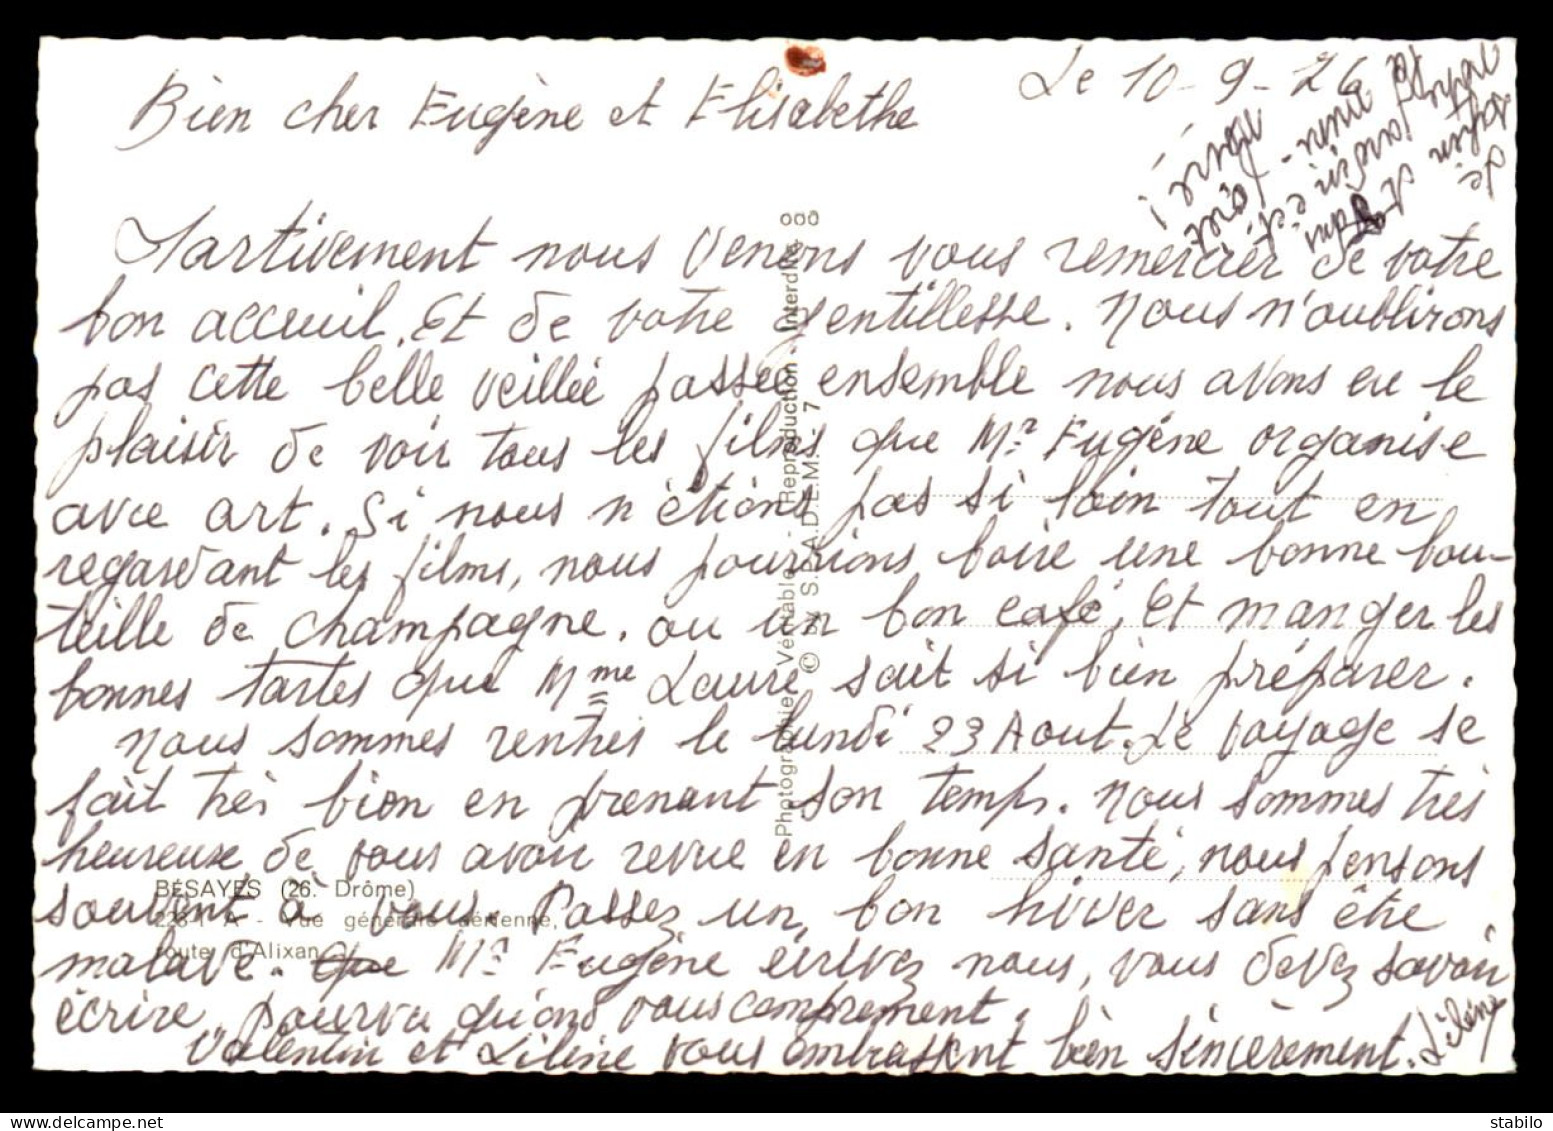 Le 10-9-76
Bien cher Eugène et Elisabethe
Tartivement nous venons vous remercier de votre
bon acceuil. Et de votre gentillesse. Nous n'oublirons
pas cette belle veillée passée ensemble nous avons eu le
plaisir de voir tous les films que Mr Eugène organise
avec art. Si nous n'étions pas si loin tout en
regardant les films, nous pourrions boire une bonne bou-
teille de champagne. ou un bon café, Et manger les
bonnes tartes que Mme Laure sait si bien préparer.
Nous sommes rentrés le lundi 23 Aout. Le voyage se
fait très bien en prenant son temps. Nous sommes très
heureuse de vous avoir revue en bonne santé, nous pensons
souvent à vous. Passez un, bon hiver sans être
malade. Que Mr Eugène écrivez nous, vous devez savoir
écrire, pourvu qu'ond vous comprement.
Valentin et Liline vous embrassent bien sincèrement. Liline
Le
et dans
jardin est
mort
Photographie Véritable - Reproduction Interdite
© by S.P.A.D.E.M. 7
BÉSAYES (26. Drôme)
226-1 A - Vue générale aérienne,
route d'Alixan